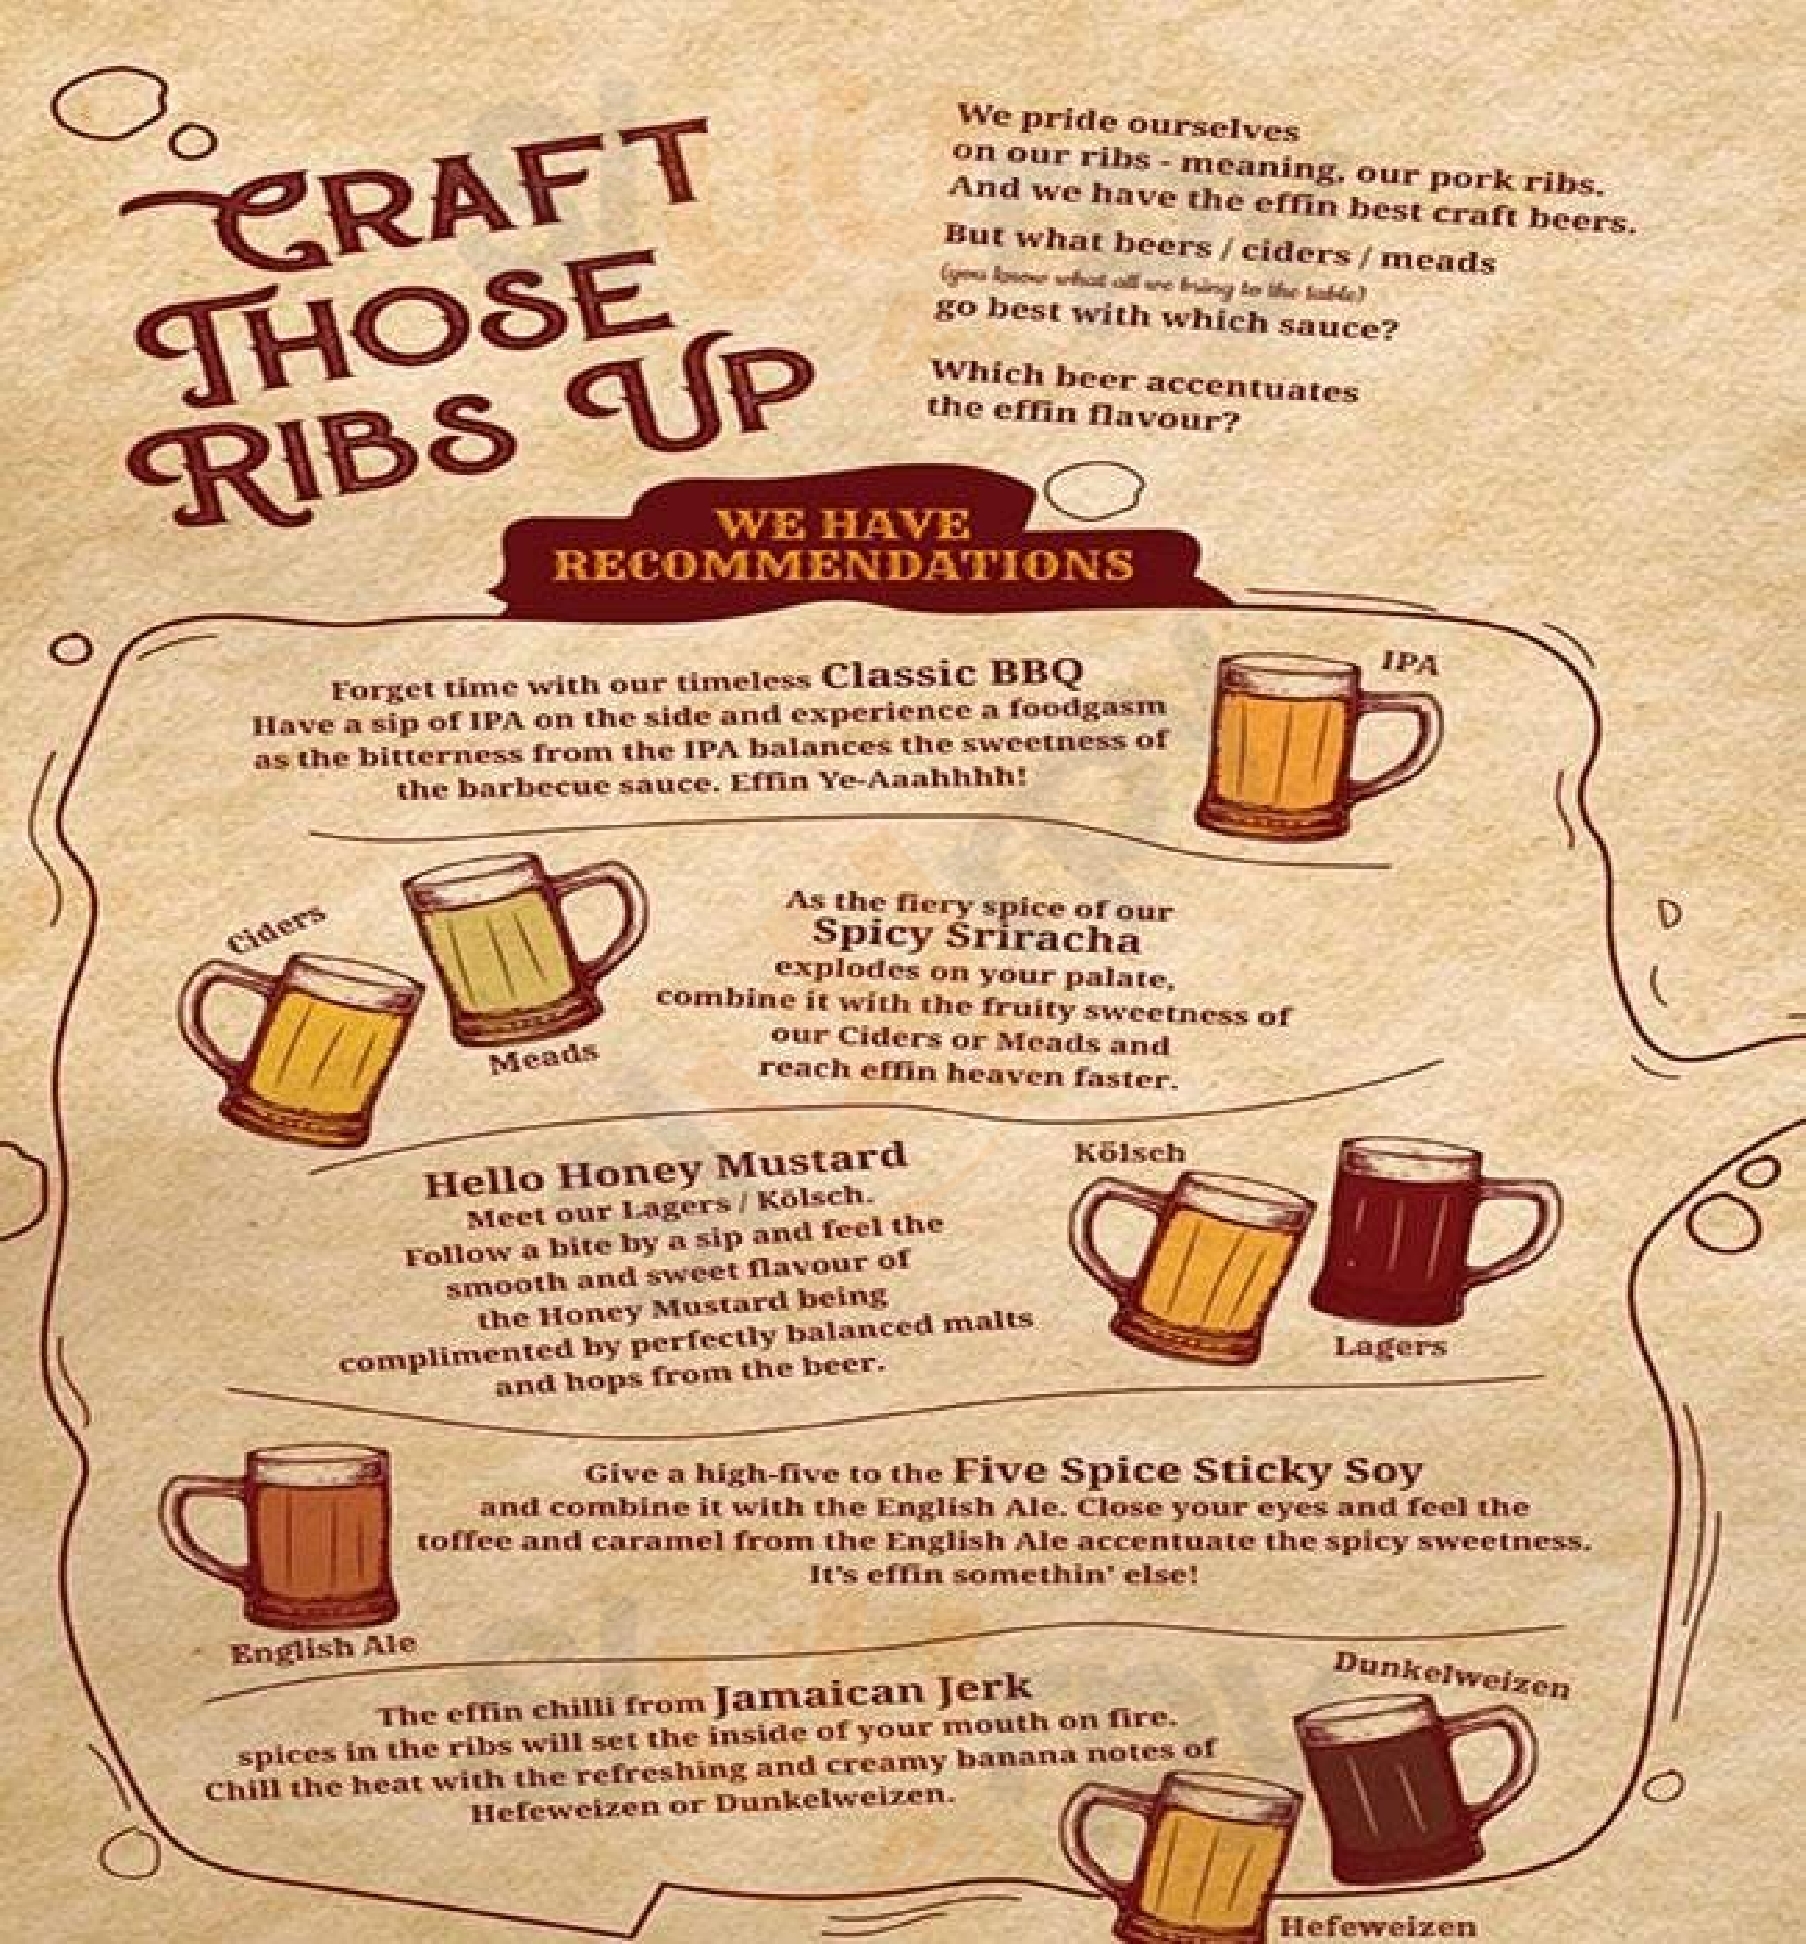 CRAFT
THOSE
RIBS UP
We pride ourselves
on our ribs - meaning, our pork ribs.
And we have the effin best craft beers.
But what beers / ciders / meads
(you know what all we bring to the table)
go best with which sauce?
Which beer accentuates
the effin flavour?
WE HAVE
RECOMMENDATIONS
Forget time with our timeless Classic BBQ
Have a sip of IPA on the side and experience a foodgasm
as the bitterness from the IPA balances the sweetness of
the barbecue sauce. Effin Ye-Aaahhhhh!
IPA
Ciders
Meads
As the fiery spice of our
Spicy Sriracha
explodes on your palate,
combine it with the fruity sweetness of
our Ciders or Meads and
reach effin heaven faster.
Hello Honey Mustard
Meet our Lagers / Kölsch.
Follow a bite by a sip and feel the
smooth and sweet flavour of
the Honey Mustard being
complimented by perfectly balanced malts
and hops from the beer.
Kölsch
Lagers
Give a high-five to the Five Spice Sticky Soy
and combine it with the English Ale. Close your eyes and feel the
toffee and caramel from the English Ale accentuate the spicy sweetness.
It's effin somethin' else!
English Ale
The effin chilli from Jamaican Jerk
spices in the ribs will set the inside of your mouth on fire.
Chill the heat with the refreshing and creamy banana notes of
Hefeweizen or Dunkelweizen.
Dunkelweizen
Hefeweizen